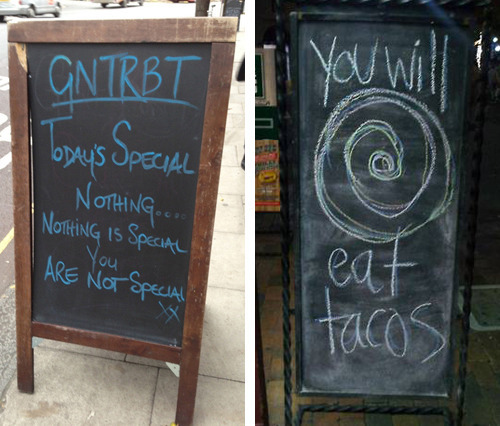 GNTRBT
TODAY'S SPECIAL
NOTHING....
NOTHING IS SPECIAL
YOU
ARE NOT SPECIAL
XX
You will
eat
tacos